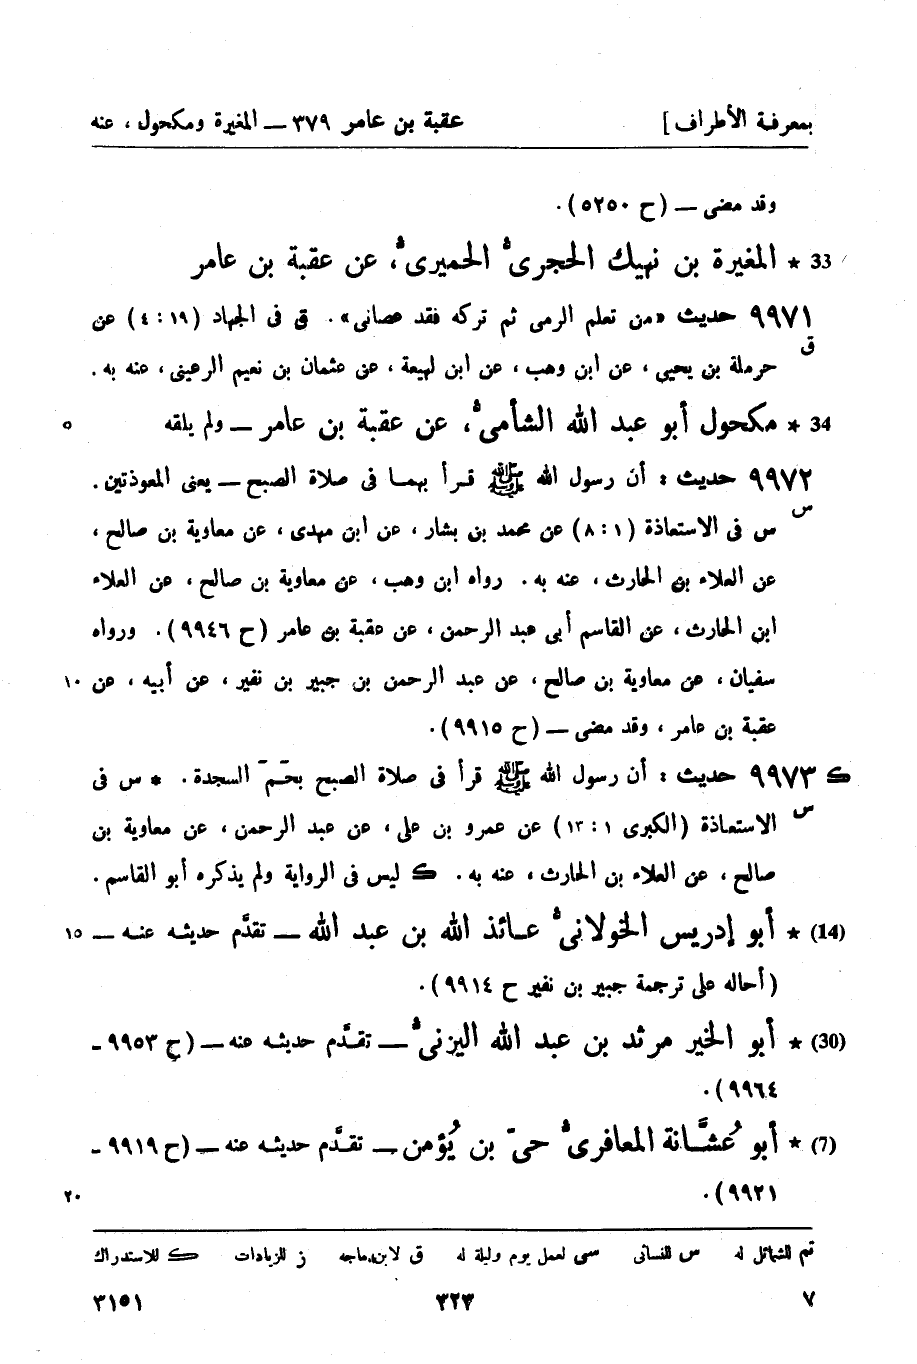 بمعرفة الأطراف] عقبة بن عامر ٣٧٩ — المغيرة ومكحول ، عنه
وقد مضى — (ح ٥٢٥٠) .
33 * المغيرة بن نهيك الحجرى ، الحميرى ، عن عقبة بن عامر
٩٩٧١ حديث «من تعلم الرمى ثم تركه فقد عصانى» . ق فى الجهاد (١٩ : ٤) عن
ق
حرملة بن يحيى ، عن ابن وهب ، عن ابن لهيعة ، عن عثمان بن نعيم الرعينى ، عنه به .
34 * مكحول أبو عبد الله الشأمى ، عن عقبة بن عامر — ولم يلقه ٥
٩٩٧٢ حديث : أن رسول الله ﷺ قرأ بهما فى صلاة الصبح — يعنى المعوذتين .
س
س فى الاستعاذة (١ : ٨) عن محمد بن بشار ، عن ابن مهدى ، عن معاوية بن صالح ،
عن العلاء بن الحارث ، عنه به . رواه ابن وهب ، عن معاوية بن صالح ، عن العلاء
ابن الحارث ، عن القاسم أبى عبد الرحمن ، عن عقبة بن عامر (ح ٩٩٤٦) . ورواه
سفيان ، عن معاوية بن صالح ، عن عبد الرحمن بن جبير بن نفير ، عن أبيه ، عن ١٠
عقبة بن عامر ، وقد مضى — (ح ٩٩١٥) .
ك ٩٩٧٣ حديث : أن رسول الله ﷺ قرأ فى صلاة الصبح بحٓمٓ السجدة . * س فى
س
الاستعاذة (الكبرى ١ : ١٣) عن عمرو بن على ، عن عبد الرحمن ، عن معاوية بن
صالح ، عن العلاء بن الحارث ، عنه به . ك ليس فى الرواية ولم يذكره أبو القاسم .
(14) * أبو إدريس الخولانى عـائذ الله بن عبد الله — تقدَّم حديثـه عنـه — ١٥
(أحاله على ترجمة جبير بن نفير ح ٩٩١٤) .
(30) * أبو الخير مرثد بن عبد الله اليزنى — تقـدَّم حديثـه عنه — (ح ٩٩٥٣ -
٩٩٦٤) .
(7) * أبو عُشَّانة المعافرى حىّ بن يُؤمن — تقـدَّم حديثـه عنه — (ح ٩٩١٩ -
٩٩٢١) . ٢٠
تم للشمائل له س للنسائى سى لعمل يوم وليلة له ق لابن ماجه ز للزيادات ك للاستدراك
٧ ٣٢٣ ٣١٥١